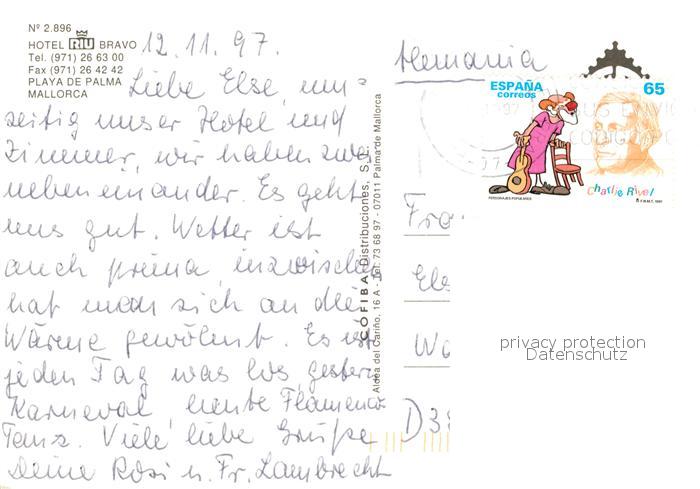 Nº 2.896
HOTEL RIU BRAVO
Tel. (971) 26 63 00
Fax (971) 26 42 42
PLAYA DE PALMA
MALLORCA
12.11.97.
Liebe Else, um=
seitig unser Hotel und
Zimmer, wir haben zwei
nebeneinander. Es geht
uns gut. Wetter ist
auch prima, inzwischen
hat man sich an die
Wärme gewöhnt. Es ist
jeden Tag was los, gestern
Karneval, heute Flamenco
Tanz. Viele liebe Grüße
Deine Rosi u. Fr. Lambrecht
COFIBA Distribuciones, S.
Aldea del Cariño, 16 A - Tel. 73 68 97 - 07011 Palma de Mallorca
Alemania
ESPAÑA
correos
65
Charlie Rivel
PERSONAJES POPULARES
F.N.M.T. 1997
Fra
Els
Wo
D 38
privacy protection
Datenschutz